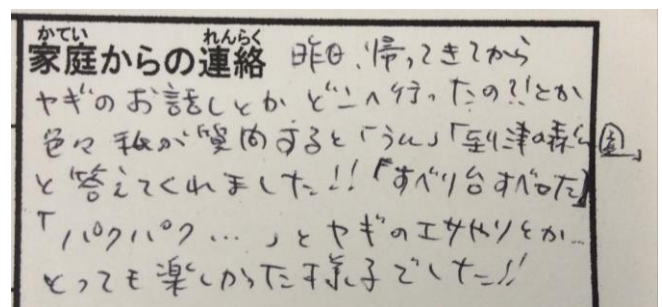 かてい れんらく
家庭からの連絡 昨日、帰ってきてから
ヤギのお話しとか どこへ行ったの?!とか
色々 私が質問すると「うん」「到津の森公園」
と答えてくれました!!「すべり台すべった」
「パクパク…」とヤギのエサやりとか…
とっても楽しかった様子でした!!